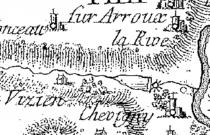 sur Arroux
onceau
la Rive
Vixien
Chevigny